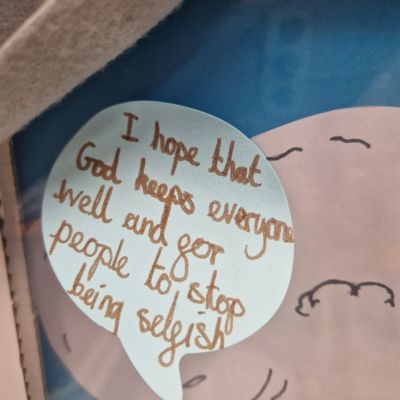 I hope that
God keeps everyone
well and for
people to stop
being selfish